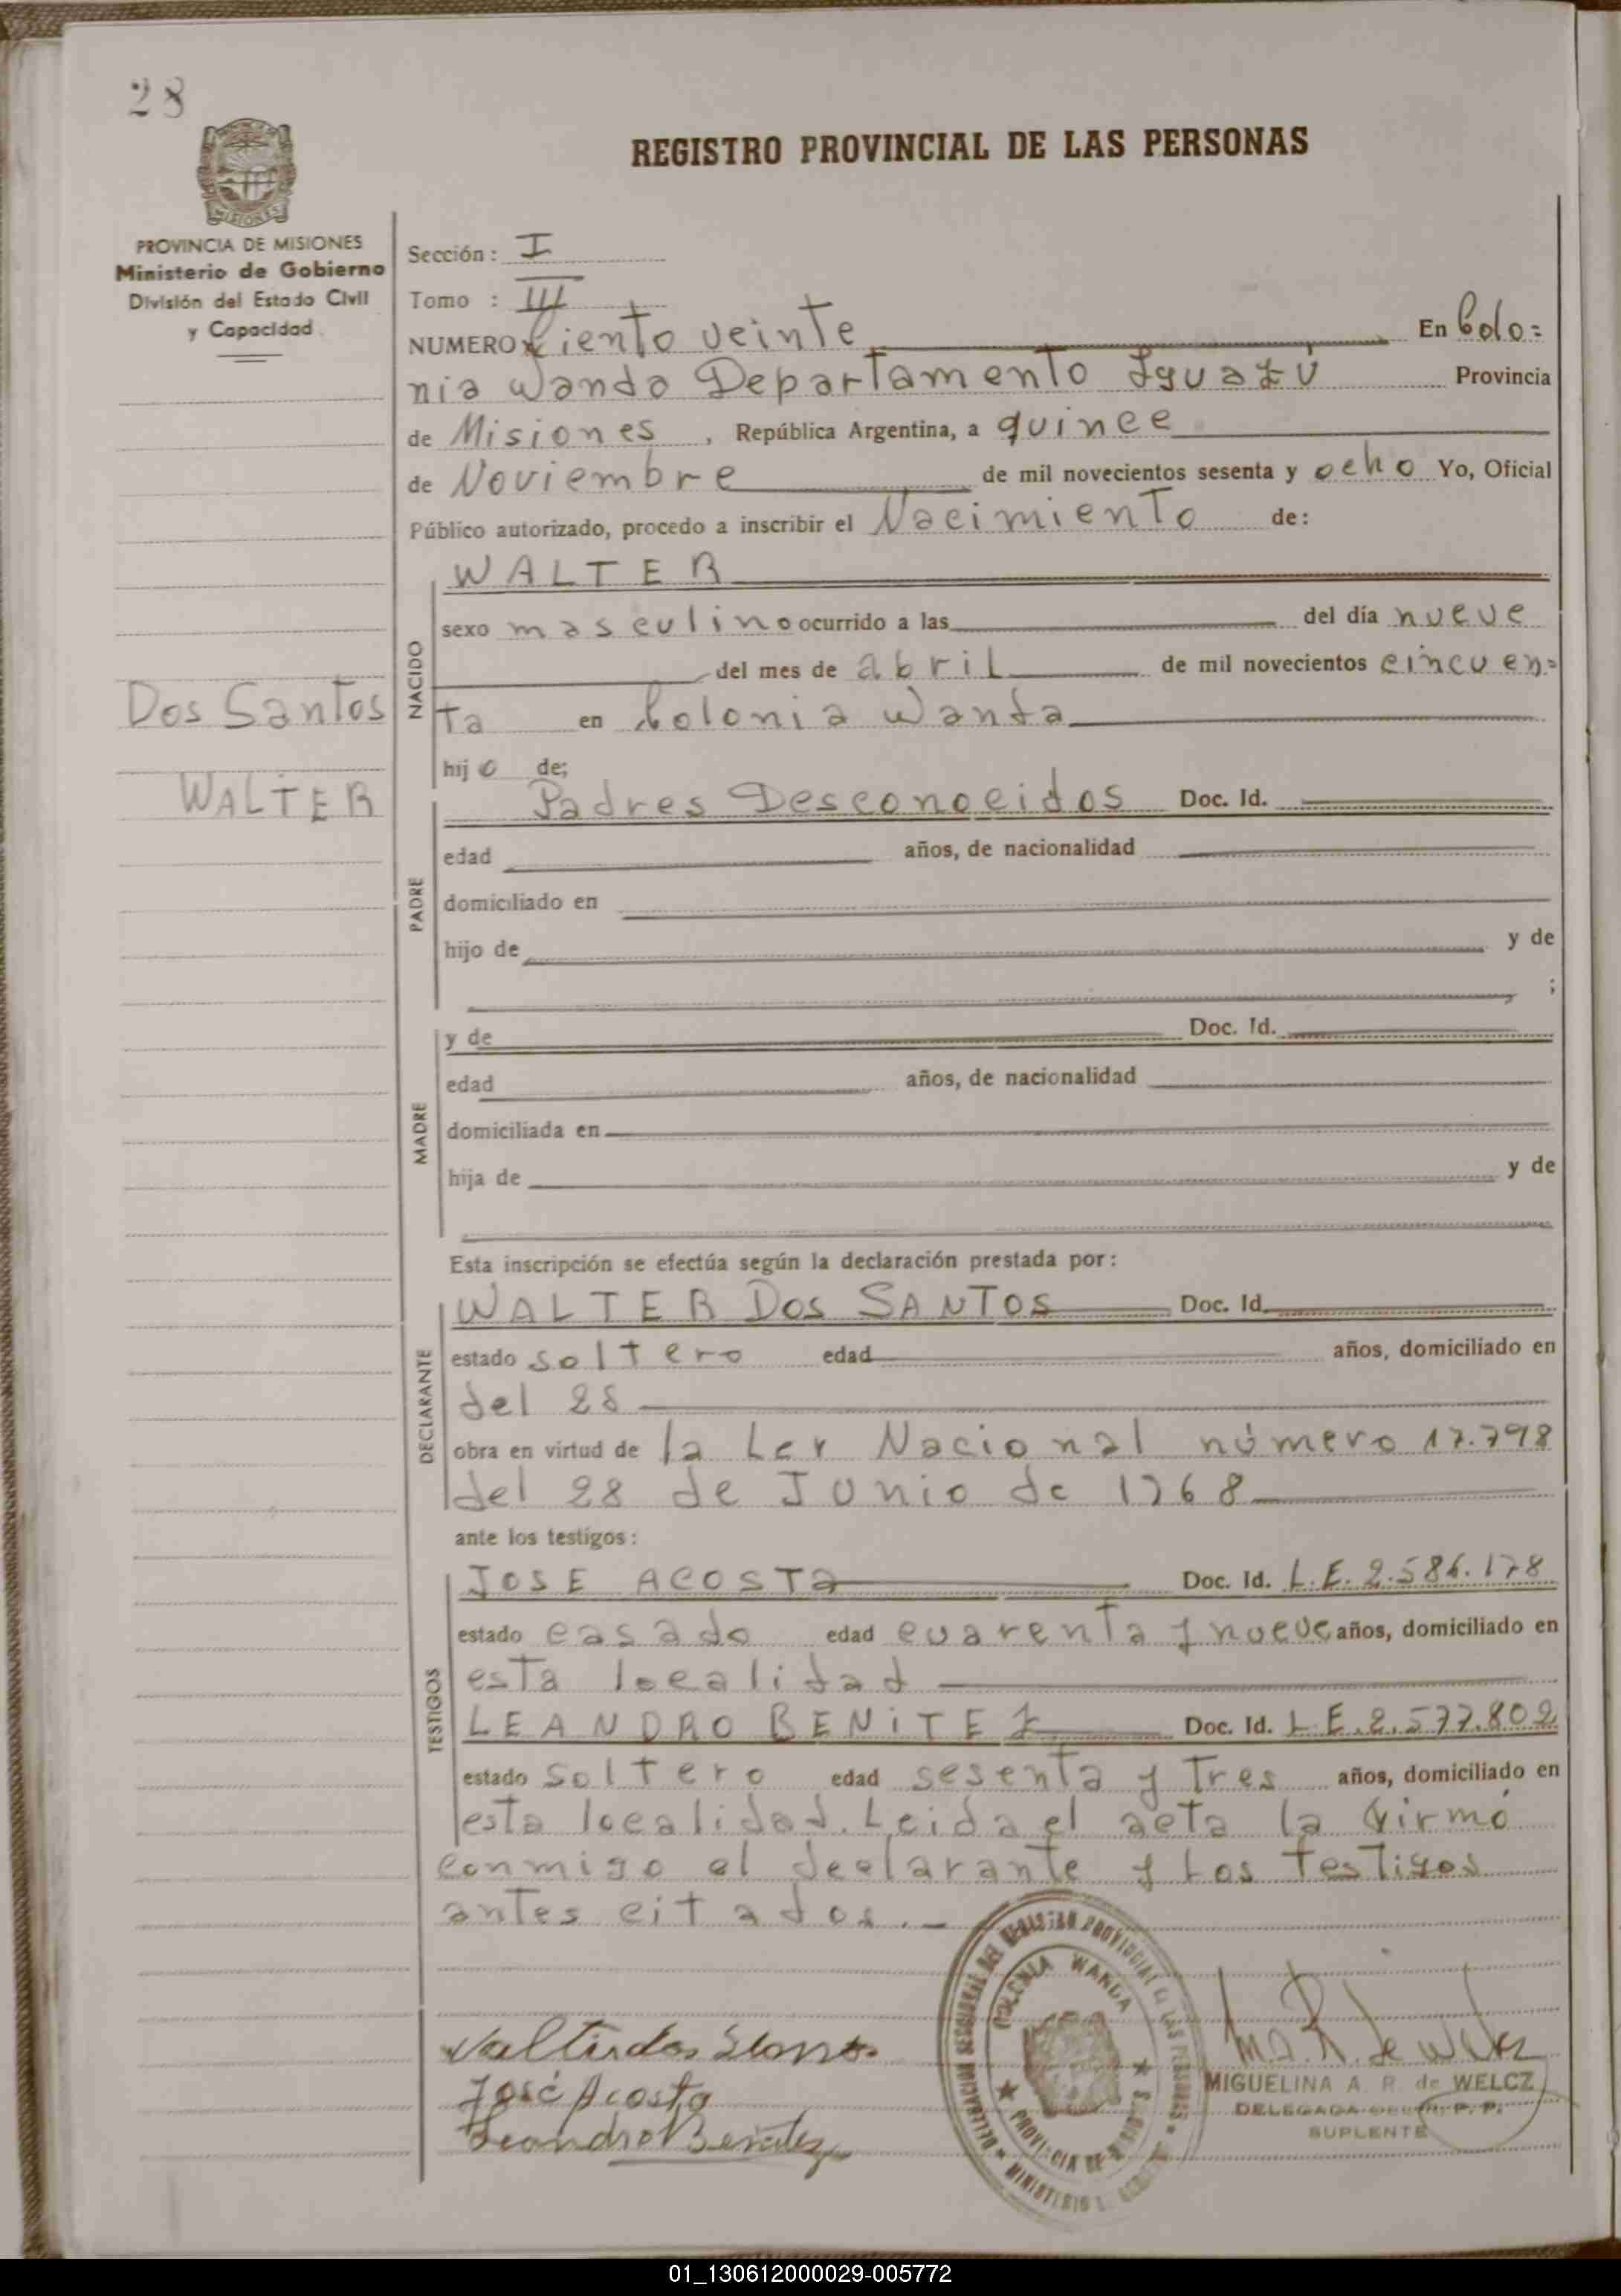 28
REGISTRO PROVINCIAL DE LAS PERSONAS
MISIONES
PROVINCIA DE MISIONES
Ministerio de Gobierno
División del Estado Civil
y Capacidad
Sección: I
Tomo : III
NUMERO Ciento veinte En Colo=
nia Wanda Departamento Iguazú Provincia
de Misiones, República Argentina, a quince
de Noviembre de mil novecientos sesenta y ocho Yo, Oficial
Público autorizado, procedo a inscribir el Nacimiento de:
NACIDO
WALTER
sexo masculino ocurrido a las del día nueve
del mes de abril de mil novecientos cincuen=
Dos Santos
ta en Colonia Wanda
WALTER
hijo de;
PADRE
Padres Desconocidos Doc. Id.
edad años, de nacionalidad
domiciliado en
hijo de y de
;
MADRE
y de Doc. Id.
edad años, de nacionalidad
domiciliada en
hija de y de
Esta inscripción se efectúa según la declaración prestada por:
DECLARANTE
WALTER DOS SANTOS Doc. Id.
estado soltero edad años, domiciliado en
del 28
obra en virtud de la Ley Nacional número 17.798
del 28 de Junio de 1968
ante los testigos:
TESTIGOS
JOSE ACOSTA Doc. Id. L.E. 2.586.178
estado casado edad cuarenta y nueve años, domiciliado en
esta localidad
LEANDRO BENiTEZ Doc. Id. L.E. 2.577.802
estado soltero edad sesenta y tres años, domiciliado en
esta localidad. Leida el acta la firmó
conmigo el declarante y los testigos
antes citados.-
DELEGACION SECCIONAL DEL REGISTRO PROVINCIAL DE LAS PERSONAS
COLONIA WANDA
PROVINCIA DE MISIONES
MINISTERIO
Valter dos Santos
José Acosta
Leandro Benitez
M.A.R. de Welcz
MIGUELINA A. R. de WELCZ
DELEGADA
SUPLENTE
01_130612000029-005772